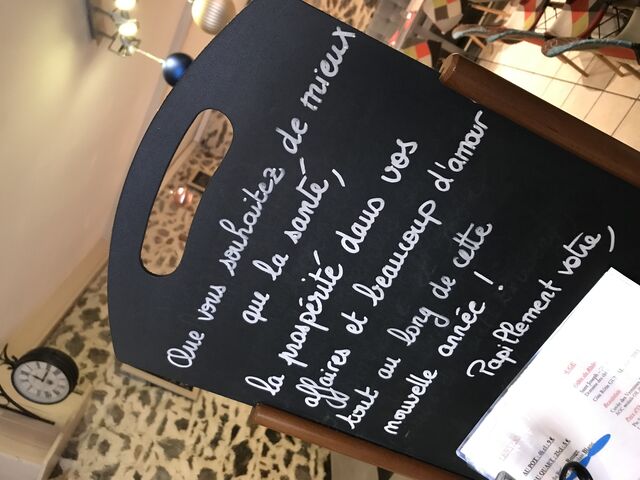 Que vous souhaitez de mieux
que la santé,
la prospérité dans vos
affaires et beaucoup d'amour
tout au long de cette
nouvelle année !
Papillement vôtre,